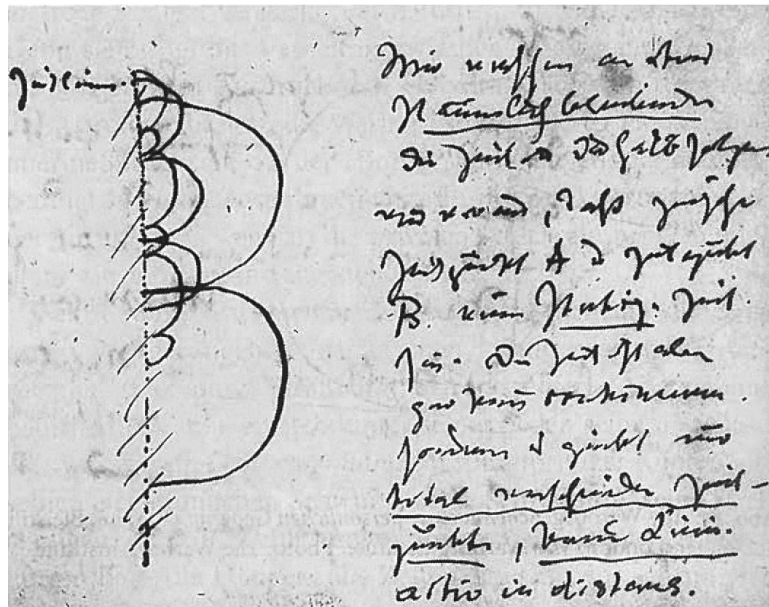 Zeitlinie.
Wir messen an etwas
Räumlich bleibendem
die Zeit u deshalb setzen
wir voraus, daß zwischen
Zeitpunkt A u Zeitpunkt
B. eine stetige Zeit
sei. Die Zeit ist aber
gar kein continuum.
sondern es giebt nur
total verschiedene Zeit-
punkte, keine Linie.
actio in distans.